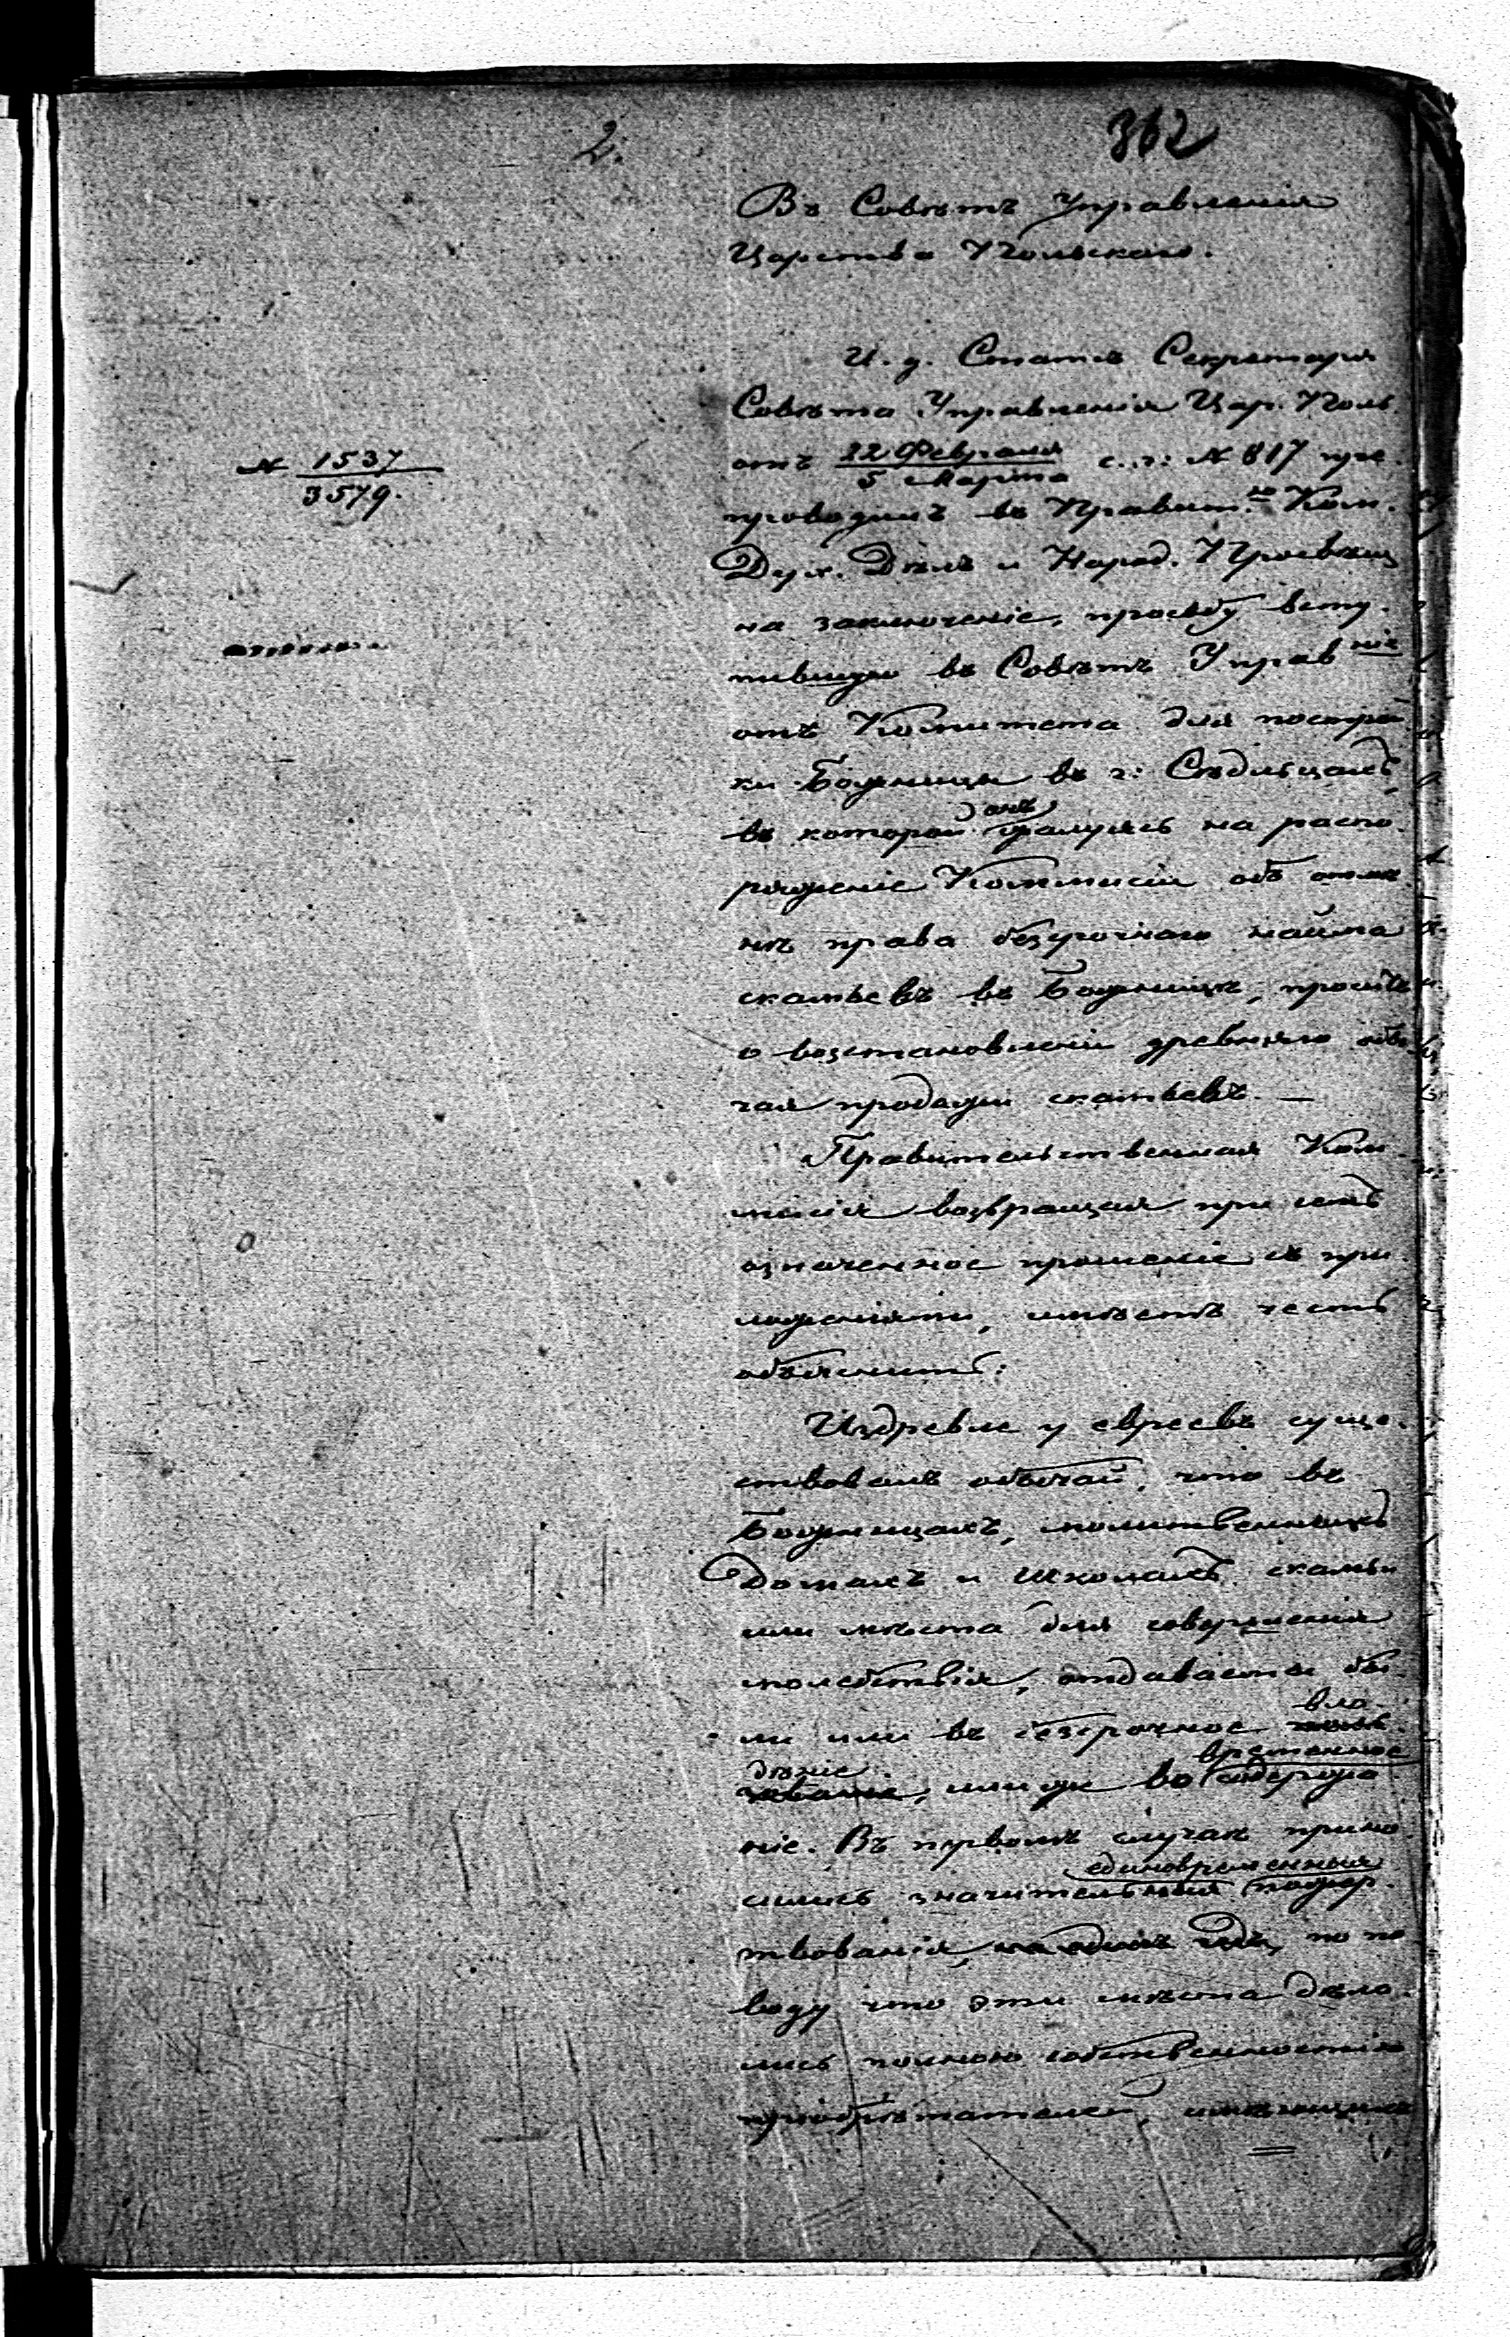 2.
362
Въ Совѣтъ Управленія
Царства Польскаго.
И. д. Статсъ Секретаря
Совѣта Управленія Цар. Поль.
№ 1537/3579.
отъ 22 Февраля/5 Марта с. г: № 817 пре-
проводилъ въ Правит.ю Ком.
Дух. Дѣлъ и Народ. Просвѣщ
на заключеніе, просьбу всту-
пившую въ Совѣтъ Управнія
отъ Комитета для построй
ки Божницы въ г: Сѣдльцахъ,
въ которой онъ жалуясь на распо-
ряженіе Коммисіи объ отмѣ-
нѣ права безсрочнаго найма
скамьевъ въ Божницѣ, проситъ
о возстановленіи древняго обы-
чая продажи скамьевъ. —
Правительственная Ком-
мисія возвращая при семъ
означенное прошеніе съ при-
ложеніями, имѣетъ честь
объяснить:
Издревле у евреевъ суще-
ствовалъ обычай, что въ
Божницахъ, молитвенныхъ
домахъ и школахъ скамьи
или мѣста для совершенія
молебствія, отдаваемы бы-
ли или въ безсрочное вла-
дѣніе, или же во временное содержа-
ніе. Въ первомъ случаѣ прино-
сились значительныя единовременныя пожер-
твованія, по по
воду что эти мѣста дѣла-
лись полною собственностію
пріобрѣтателей, имѣющихъ